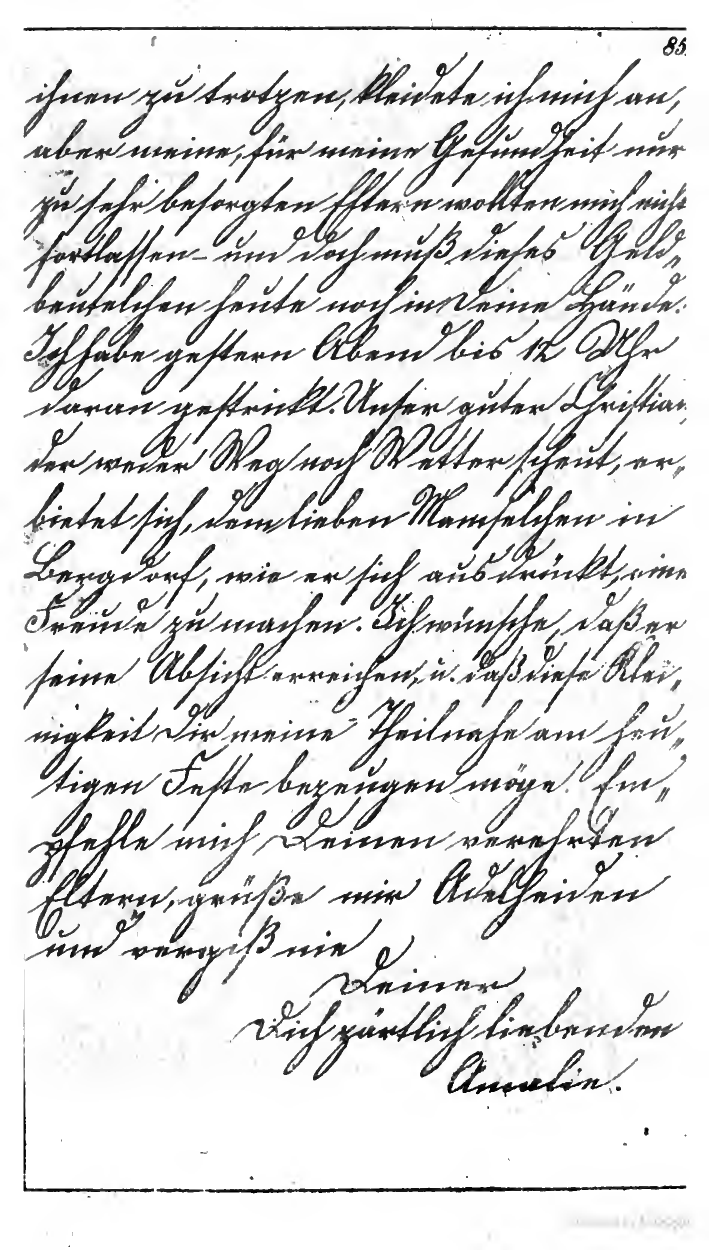 85.
ihnen zu trotzen, kleidete ich mich an,
aber meine, für meine Gesundheit nur
zu sehr besorgten Eltern wollten mich nicht
fortlassen – und doch muß dieses Geld„
beutelchen heute noch in Deine Hände.
Ich habe gestern Abend bis 12 Uhr
daran gestrickt. Unser guter Christian,
der weder Weg noch Wetter scheut, er„
bietet sich, dem lieben Mamselchen in
Bergdorf, wie er sich ausdrückt, eine
Freude zu machen. Ich wünsche, daß er
seine Absicht erreichen, u. daß diese Klei„
nigkeit Dir meine Theilnahe am heu„
tigen Feste bezeugen möge. Em„
pfehle mich Deinen verehrten
Eltern, grüße mir Adelheiden
und vergiß nie
Deiner
Dich zärtlich liebenden
Amalie.